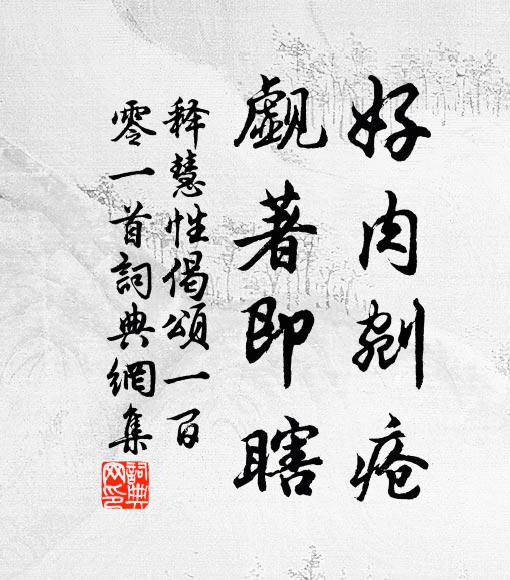 好肉剜疮
觑著即瞎
释慧性偈頌一百
零一首詞典網集
詞典网印